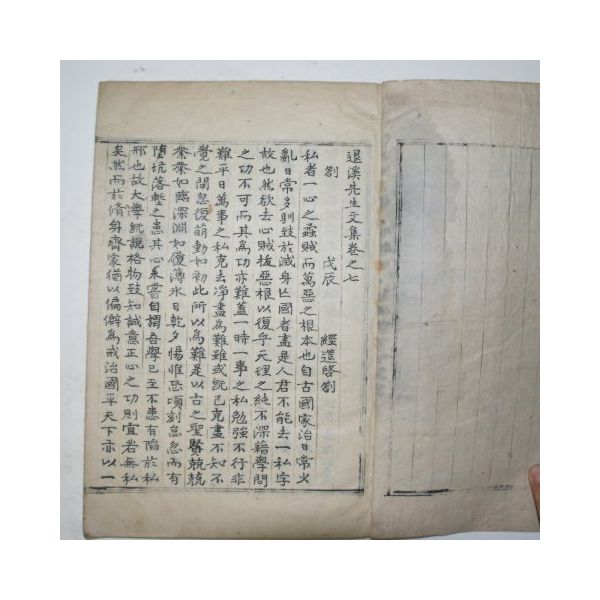 退溪先生文集卷之七
劄 戊辰 經筵啓劄
私者一心之蟊賊而萬惡之根本也自古國家治日常少
亂日常多馴致於滅身亡國者盡是人君不能去一私字
故也然欲去心賊拔惡根以復乎天理之純不深藉學問
之功不可而其爲功亦難蓋一時一事之私勉強不行非
難平日萬事之私克去淨盡爲難雖或旣已克盡不知不
覺之間忽復萌動如初此所以爲難是以古之聖賢兢兢
業業如臨深淵如履薄氷日乾夕惕惟恐頃刻怠忽而有
墮坑落塹之患其心未嘗自謂吾學已至不患有陷於私
邪也故大學旣說格物致知誠意正心之功則宜若無私
矣然而於脩身齊家猶以偏僻爲戒治國平天下亦以一